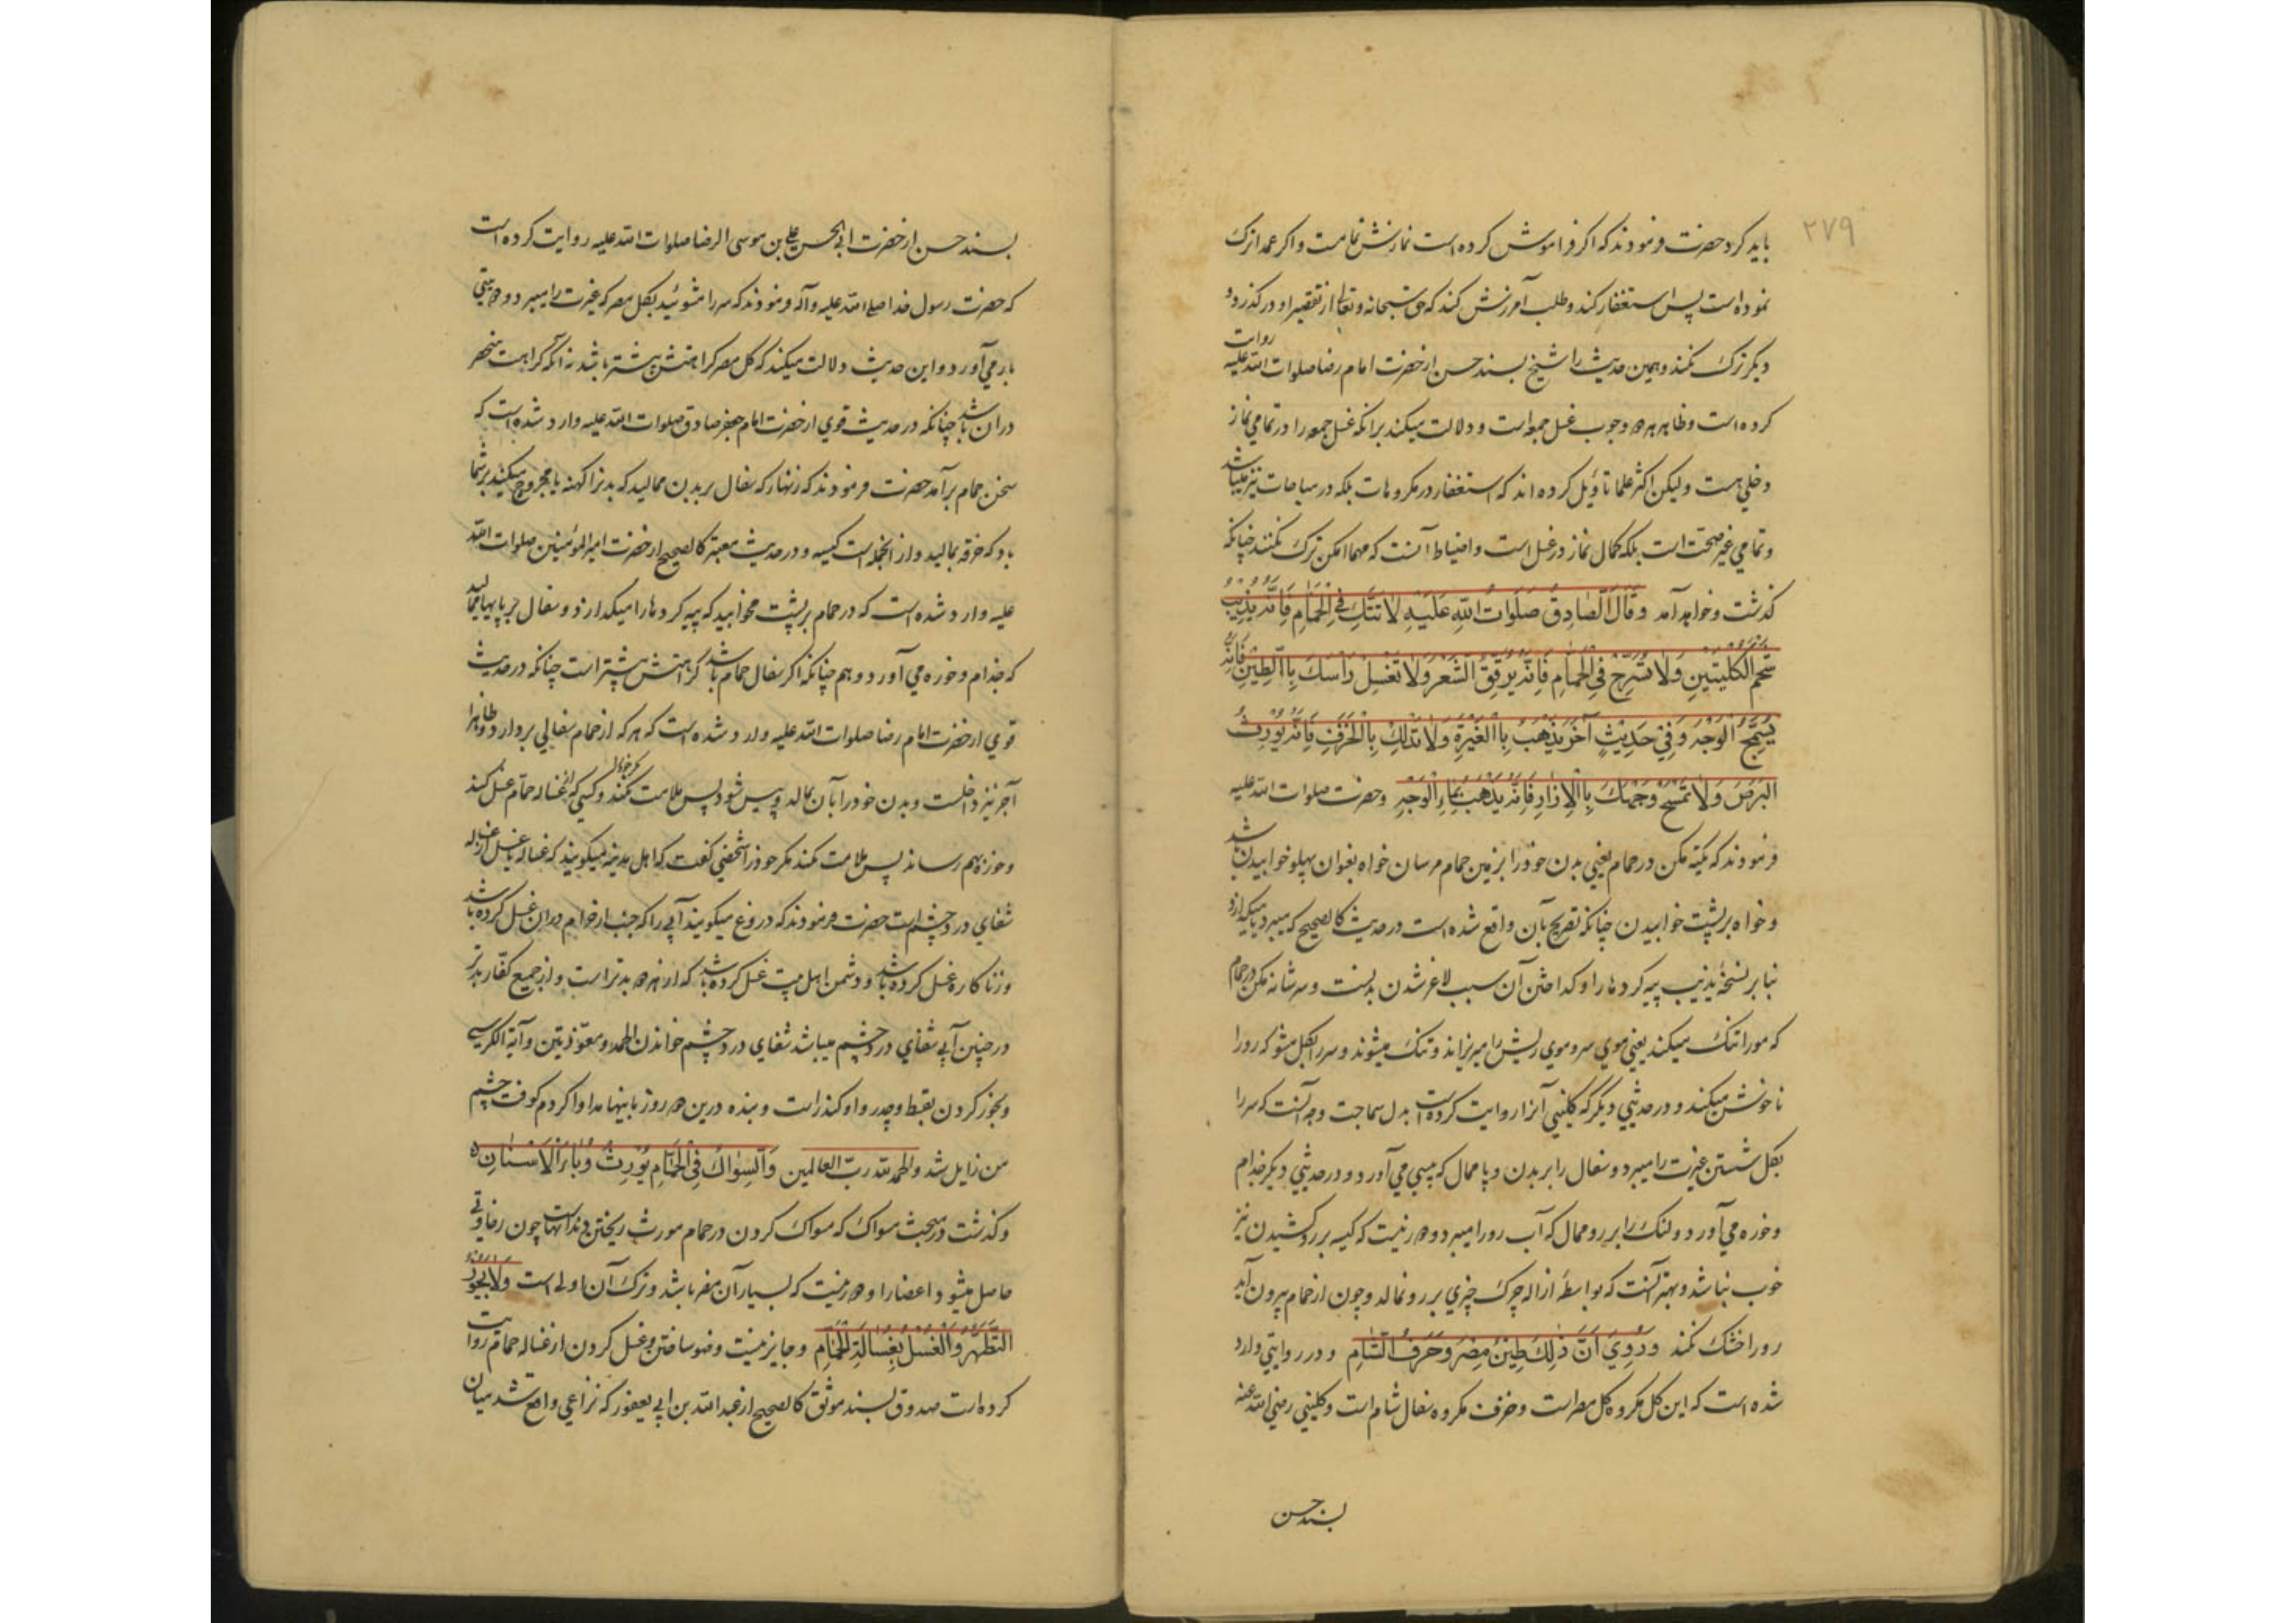 ۲۷۹
باید کرد حضرت فرمودند که اکر فراموش کرده است نمازش تمامست و اکر عمدا ترک
نموده است پس استغفار کند و طلب آمرزش کند که حق سبحانه و تعالی از تقصیر او درکذرد و
دیکر ترک نکند و همین حدیث را شیخ بسند حسن از حضرت امام رضا صلوات الله علیه روایت
کرده است و ظاهر هر دو وجوب غسل جمعه است و دلالت میکند بر آنکه غسل جمعه را در تمامی نماز
دخلی هست ولیکن اکثر علما تأویل کرده اند که استغفار در مکروهات بلکه در مباحات نیز میباشد
و تمامی غیر صحت است بلکه کمال نماز در غسل است و احتیاط آنست که مهما امکن ترک نکنند چنانکه
کذشت و خواهد آمد وَقَالَ الصَّادِقُ صَلَوَاتُ اللهِ عَلَیْهِ لَا تَتَّکِ فِی الْحَمَّامِ فَاِنَّهُ یُذِیبُ
شَحْمَ الْکُلْیَتَیْنِ وَلَا تُسَرِّحْ فِی الْحَمَّامِ فَاِنَّهُ یُرَقِّقُ الشَّعْرَ وَلَا تَغْسِلْ رَأْسَکَ بِالطِّینِ فَاِنَّهُ
یُسَمِّجُ الْوَجْهَ وَفِی حَدِیثٍ آخَرَ یَذْهَبُ بِالْغَیْرَةِ وَلَا تَدْلُکْ بِالْخَزَفِ فَاِنَّهُ یُورِثُ
الْبَرَصَ وَلَا تَمْسَحْ وَجْهَکَ بِالْاِزَارِ فَاِنَّهُ یَذْهَبُ بِمَاءِ الْوَجْهِ و حضرت صلوات الله علیه
فرمودند که تکیه مکن در حمام یعنی بدن خود را بزمین حمام مرسان خواه بعنوان پهلو خوابیدن باشد
و خواه بر پشت خوابیدن چنانکه تصریح بآن واقع شده است در حدیث کالصحیح که میبرد یا میکدازد
بنا بر نسخه یذیب پیه کرده ها را و کداختن آن سبب لاغر شدن بدنست و سر شانه مکن در حمام
که مو را تنک میکند یعنی موی سر و موی ریش را میریزاند و تنک میشوند و سر را بکل مشو که رو را
ناخوش میکند و در حدیثی دیکر که کلینی آنرا روایت کرده است بدل سماجت وجه آنست که سر را
بکل شستن غیرت را میبرد و سفال را بر بدن و پا ممال که پیسی می آورد و در حدیثی دیکر جذام
و خوره می آورد و لنک را بر رو ممال که آب رو را میبرد و دور نیست که کیسه بر رو کشیدن نیز
خوب نباشد و بهتر آنست که بواسطه ازاله چرک چیزی بر رو نمالد و چون از حمام بیرون آید
رو را خشک نکند وَرُوِیَ اَنَّ ذٰلِکَ طِینُ مِصْرَ وَخَزَفُ الشَّامِ و در روایتی وارد
شده است که این کل مکروه کل مصر است و خزف مکروه سفال شام است و کلینی رضی الله عنه
بسند حسن
بسند حسن از حضرت ابی الحسن علی بن موسی الرضا صلوات الله علیه روایت کرده است
که حضرت رسول خدا صلی الله علیه و آله فرمودند که سر را مشوئید بکل مصر که غیرت را میبرد و دیوثی
بار می آورد و این حدیث دلالت میکند که کل مصر کراهتش بیشتر باشد نه آنکه کراهت منحصر
در آن باشد چنانکه در حدیث قوی از حضرت امام جعفر صادق صلوات الله علیه وارد شده است که
سخن حمام بر آمد حضرت فرمودند که زنهار که سفال بر بدن ممالید که بدنرا کهنه یا مجروح میکند بر شما
باد که خرقه بمالید و از آنجمله است کیسه و در حدیث معتبر کالصحیح از حضرت امیر المؤمنین صلوات الله
علیه وارد شده است که در حمام بر پشت مخوابید که پیه کرده ها را میکدازد و سفال بر پایها ممالید
که جذام و خوره می آورد و هم چنانکه اکر سفال حمام باشد کراهتش بیشتر است چنانکه در حدیث
قوی از حضرت امام رضا صلوات الله علیه وارد شده است که هر که از حمام سفالی بردارد و ظاهرا
آجر نیز داخلست و بدن خود را بآن بمالد و پیس شود پس ملامت نکند مکر خود را و کسی که از غساله حمام غسل کند
و خوره بهم رساند پس ملامت نکند مکر خود را شخصی کفت که اهل مدینه میکویند که غساله یا غسل از غساله
شفای درد چشم است حضرت فرمودند که دروغ میکویند آبی را که جنب از حرام در آن غسل کرده باشد
و زنا کار غسل کرده باشد و دشمن اهل بیت غسل کرده باشد که از هر دو بدتر است و از جمیع کفار بدتر
در چنین آبی شفای درد چشم میباشد شفای درد چشم خواندن الحمد و معوذتین و آیة الکرسی
و بخور کردن بقسط و و کندر است و بنده درین دو روز باینها مداوا کردم کوفت چشم
من زایل شد و الحمد لله رب العالمین وَالسِّوَاکُ فِی الْحَمَّامِ یُورِثُ وَبَاءَ الْاَسْنَانِ
و کذشت در مبحث سواک که مسواک کردن در حمام مورث ریختن دندانهاست چون رخاوتی
حاصل میشود اعضا را و دور نیست که بسیار آن مضر باشد و ترک آن اولی است وَلَا یَجُوزُ
التَّطَهُّرُ وَالْغُسْلُ بِغُسَالَةِ الْحَمَّامِ و جایز نیست وضو ساختن و غسل کردن از غساله حمام روایت
کرده است صدوق بسند موثق کالصحیح از عبد الله بن ابی یعفور که نزاعی واقع شد میان